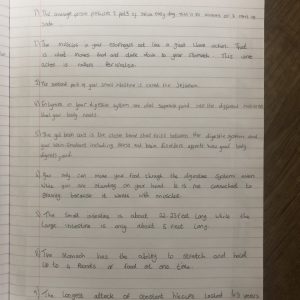 1) The average person produces 2 pints of saliva every day. This is 32 ounces or 2 cans of
soda
2) The muscles in your esophagus act like a giant wave action. That
is what moves food and drink down to your stomach. This wave
action is called Peristalsis.
3) The second part of your small intestine is called the Jejunum.
4) Enzymes in your digestive system are what separate food into the different nutrients
that your body needs.
5) The gut-brain axis is the close bond that exists between the digestive system and
your brain. Emotions including stress and brain disorders affects how your body
digests food.
6) You can move your food through the digestive system even
while you are standing on your head. It is not connected to
gravity because it works with muscles.
7) The small intestine is about 22-23 feet long while the
large intestine is only about 5 feet long.
8) The stomach has the ability to stretch and hold
up to 4 Pounds of food at one time.
9) The longest attack of constant hiccups lasted 68 years